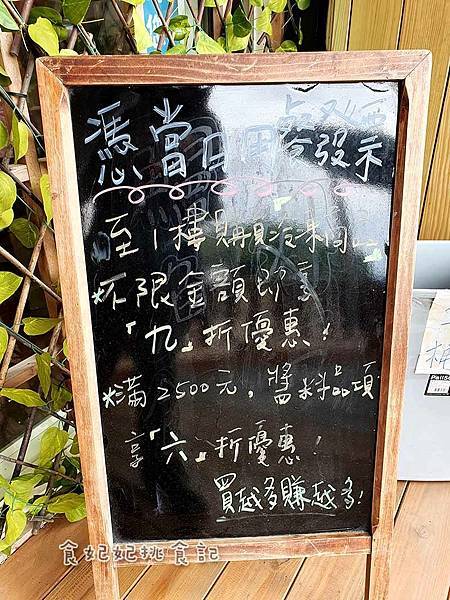 憑當日用餐發票
至1樓購買冷凍商品
*不限金額即享
「九」折優惠!
*滿2500元,醬料品項
享「六」折優惠!
買越多賺越多!
食妃妃挑食記